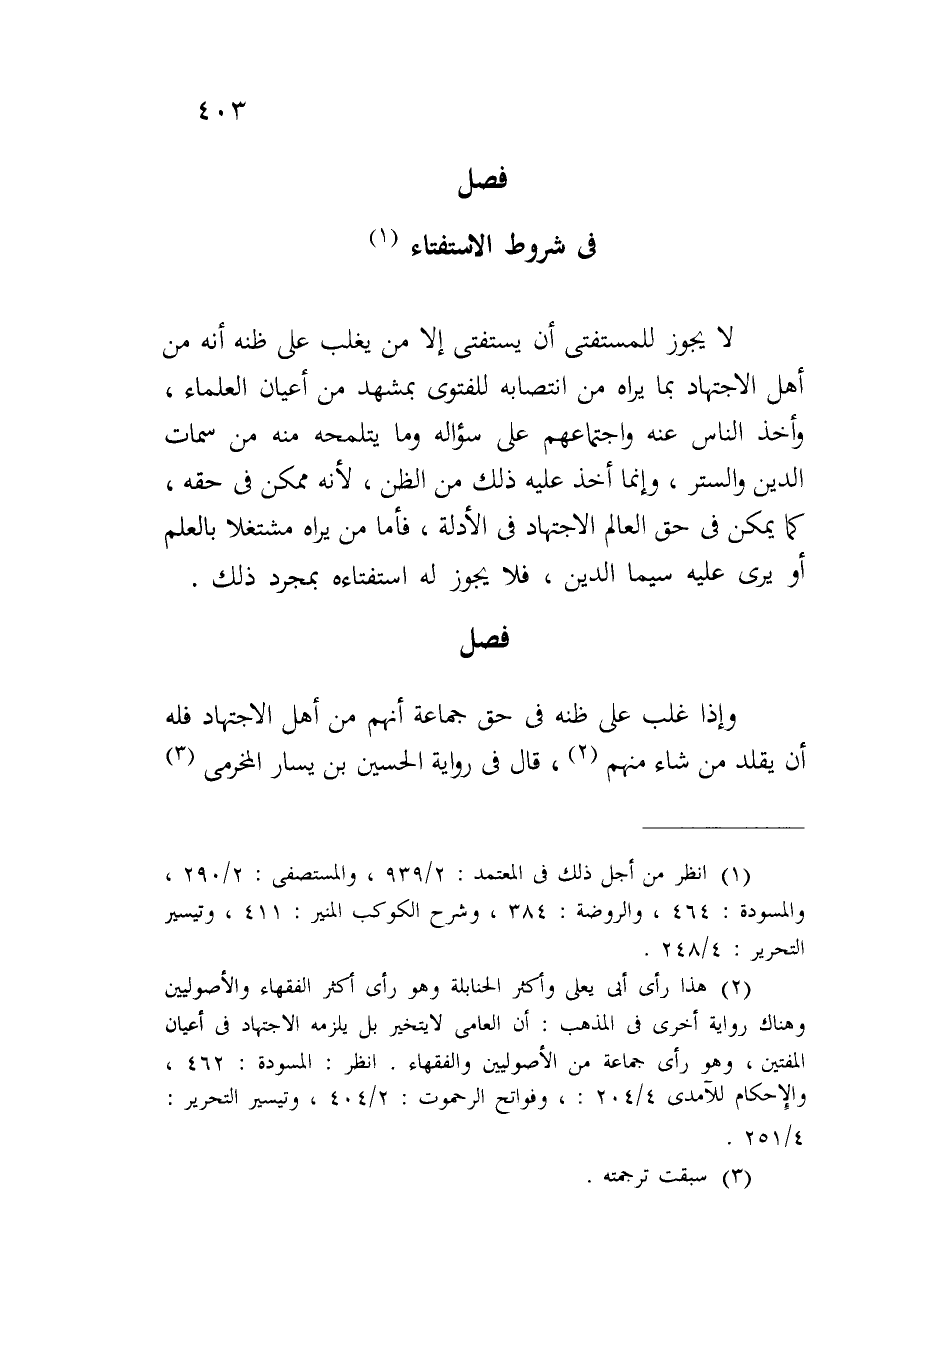 ٤٠٣
فصل
فى شروط الاستفتاء (١)
لا يجوز للمستفتى أن يستفتى إلا من يغلب على ظنه أنه من
أهل الاجتهاد بما يراه من انتصابه للفتوى بمشهد من أعيان العلماء ،
وأخذ الناس عنه واجتماعهم على سؤاله وما يتلمحه منه من سمات
الدين والستر ، وإنما أخذ عليه ذلك من الظن ، لأنه ممكن فى حقه ،
كما يمكن فى حق العالم الاجتهاد فى الأدلة ، فأما من يراه مشتغلا بالعلم
أو يرى عليه سيما الدين ، فلا يجوز له استفتاءه بمجرد ذلك .
فصل
وإذا غلب على ظنه فى حق جماعة أنهم من أهل الاجتهاد فله
أن يقلد من شاء منهم (٢) ، قال فى رواية الحسين بن يسار المخرمى (٣)
(١) انظر من أجل ذلك فى المعتمد : ٩٣٩/٢ ، والمستصفى : ٢٩٠/٢ ،
والمسودة : ٤٦٤ ، والروضة : ٣٨٤ ، وشرح الكوكب المنير : ٤١١ ، وتيسير
التحرير : ٢٤٨/٤ .
(٢) هذا رأى أبى يعلى وأكثر الحنابلة وهو رأى أكثر الفقهاء والأصوليين
وهناك رواية أخرى فى المذهب : أن العامى لايتخير بل يلزمه الاجتهاد فى أعيان
المفتين ، وهو رأى جماعة من الأصوليين والفقهاء . انظر : المسودة : ٤٦٢ ،
والإحكام للآمدى ٢٠٤/٤ : ، وفواتح الرحموت : ٤٠٤/٢ ، وتيسير التحرير :
٢٥١/٤ .
(٣) سبقت ترجمته .